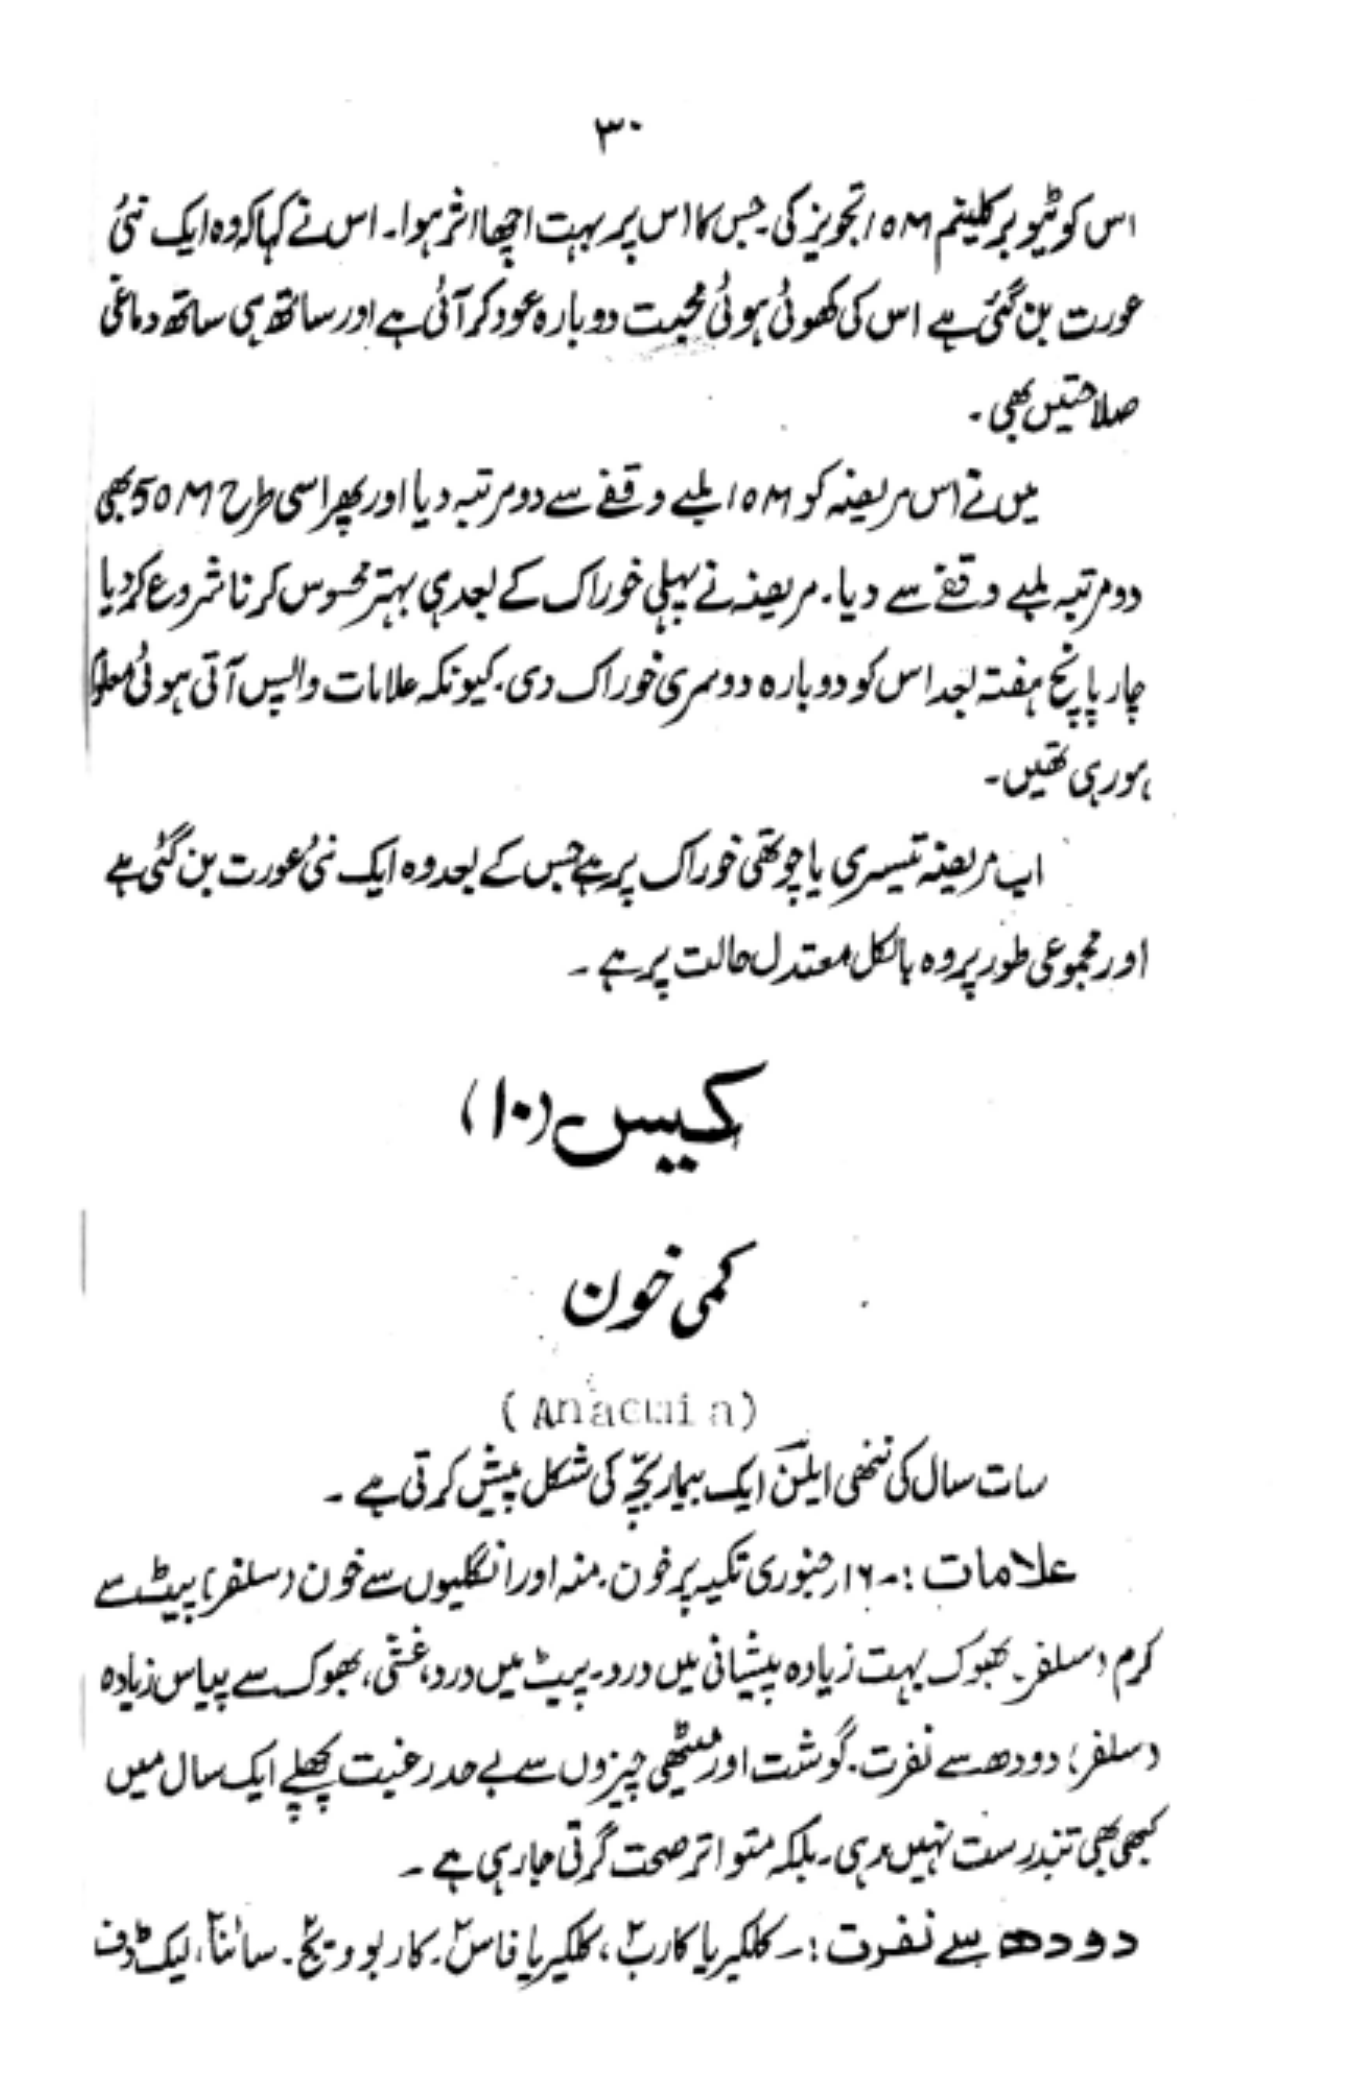 ۳۰
اس کو ٹیوبر کلینم 10M تجویز کی۔ جس کا اس پر بہت اچھا اثر ہوا۔ اس نے کہا کہ وہ ایک نئی
عورت بن گئی ہے اس کی کھوئی ہوئی محبت دوبارہ عود کر آئی ہے اور ساتھ ہی ساتھ دماغی
صلاحتیں بھی۔
میں نے اس مریضہ کو 10M لمبے وقفے سے دو مرتبہ دیا اور پھر اسی طرح 50M بھی
دو مرتبہ لمبے وقفے سے دیا۔ مریضہ نے پہلی خوراک کے بعد ہی بہتر محسوس کرنا شروع کر دیا
چار پانچ ہفتہ بعد اس کو دوبارہ دوسری خوراک دی۔ کیونکہ علامات واپس آتی ہوئی معلوم
ہو رہی تھیں۔
اب مریضہ تیسری یا چوتھی خوراک پر ہے جس کے بعد وہ ایک نئی عورت بن گئی ہے
اور مجموعی طور پر وہ بالکل معتدل حالت پر ہے۔
کیس (۱۰)
کمی خون
(Anacmia)
سات سال کی ننھی ایلسن ایک بیمار بچّہ کی شکل پیش کرتی ہے۔
علامات :۔ ۱۶ر جنوری تکیہ پر خون۔ منہ اور انگلیوں سے خون (سلفر) پیٹ سے
کرم (سلفر۔ بھوک بہت زیادہ پیشانی میں درد۔ پیٹ میں درد، غشی، بھوک سے پیاس زیادہ
(سلفر) دودھ سے نفرت۔ گوشت اور میٹھی چیزوں سے بے حد رغبت پچھلے ایک سال میں
کبھی بھی تندرست نہیں رہی۔ بلکہ متواتر صحت گرتی جا رہی ہے۔
دودھ سے نفرت :۔ کلکیریا کارب۲، کلکیریا فاس۲۔ کاربوویج۲۔ سائنا۲، لیک ڈف